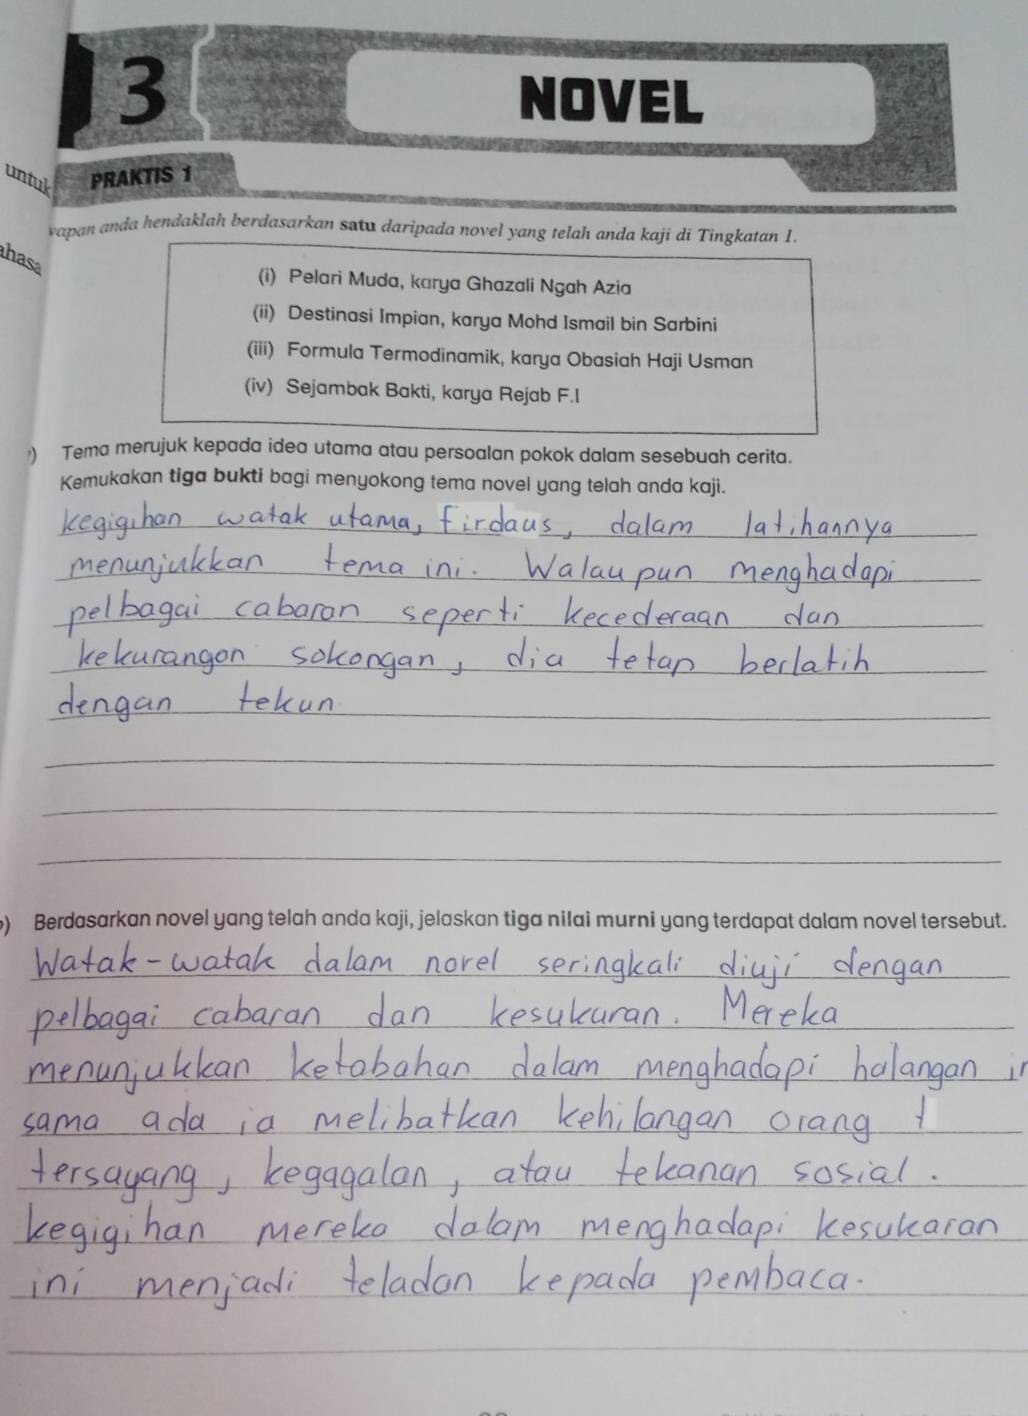 3
NOVEL
untuk
PRAKTIS 1
vapan anda hendaklah berdasarkan satu daripada novel yang telah anda kaji di Tingkatan 1.
ahasa
(i) Pelari Muda, karya Ghazali Ngah Azia
(ii) Destinasi Impian, karya Mohd Ismail bin Sarbini
(iii) Formula Termodinamik, karya Obasiah Haji Usman
(iv) Sejambak Bakti, karya Rejab F.I
) Tema merujuk kepada idea utama atau persoalan pokok dalam sesebuah cerita.
Kemukakan tiga bukti bagi menyokong tema novel yang telah anda kaji.
kegigihan watak utama, firdaus, dalam latihannya
menunjukkan tema ini. Walaupun menghadapi
pelbagai cabaran seperti kecederaan dan
kekurangan sokongan, dia tetap berlatih
dengan tekun
) Berdasarkan novel yang telah anda kaji, jelaskan tiga nilai murni yang terdapat dalam novel tersebut.
Watak-watak dalam novel seringkali diuji dengan
pelbagai cabaran dan kesukaran. Mereka
menunjukkan ketabahan dalam menghadapi halangan in
sama ada ia melibatkan kehilangan orang t
tersayang, kegagalan, atau tekanan sosial.
kegigihan mereka dalam menghadapi kesukaran
ini menjadi teladan kepada pembaca.